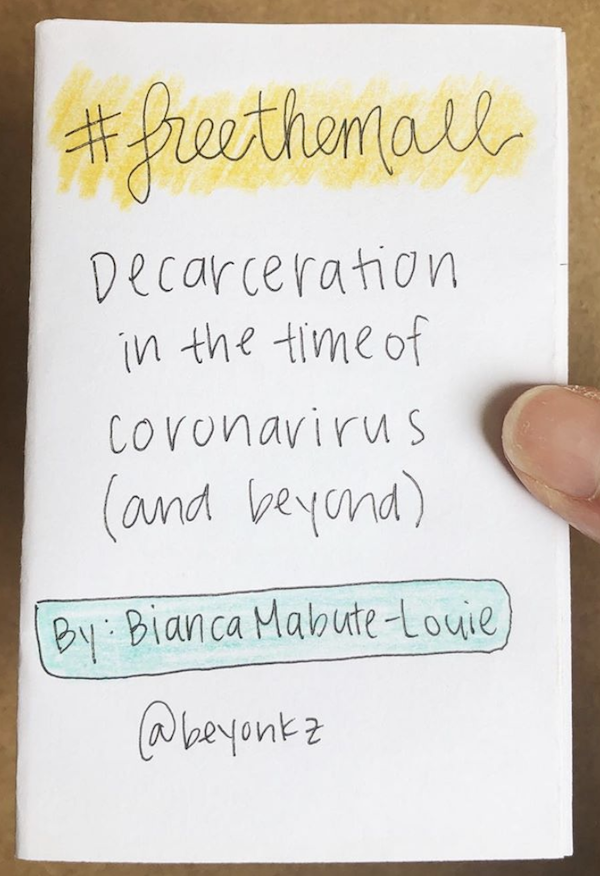 #freethemall
Decarceration
in the time of
coronavirus
(and beyond)
By: Bianca Mabute-Louie
@beyonkz